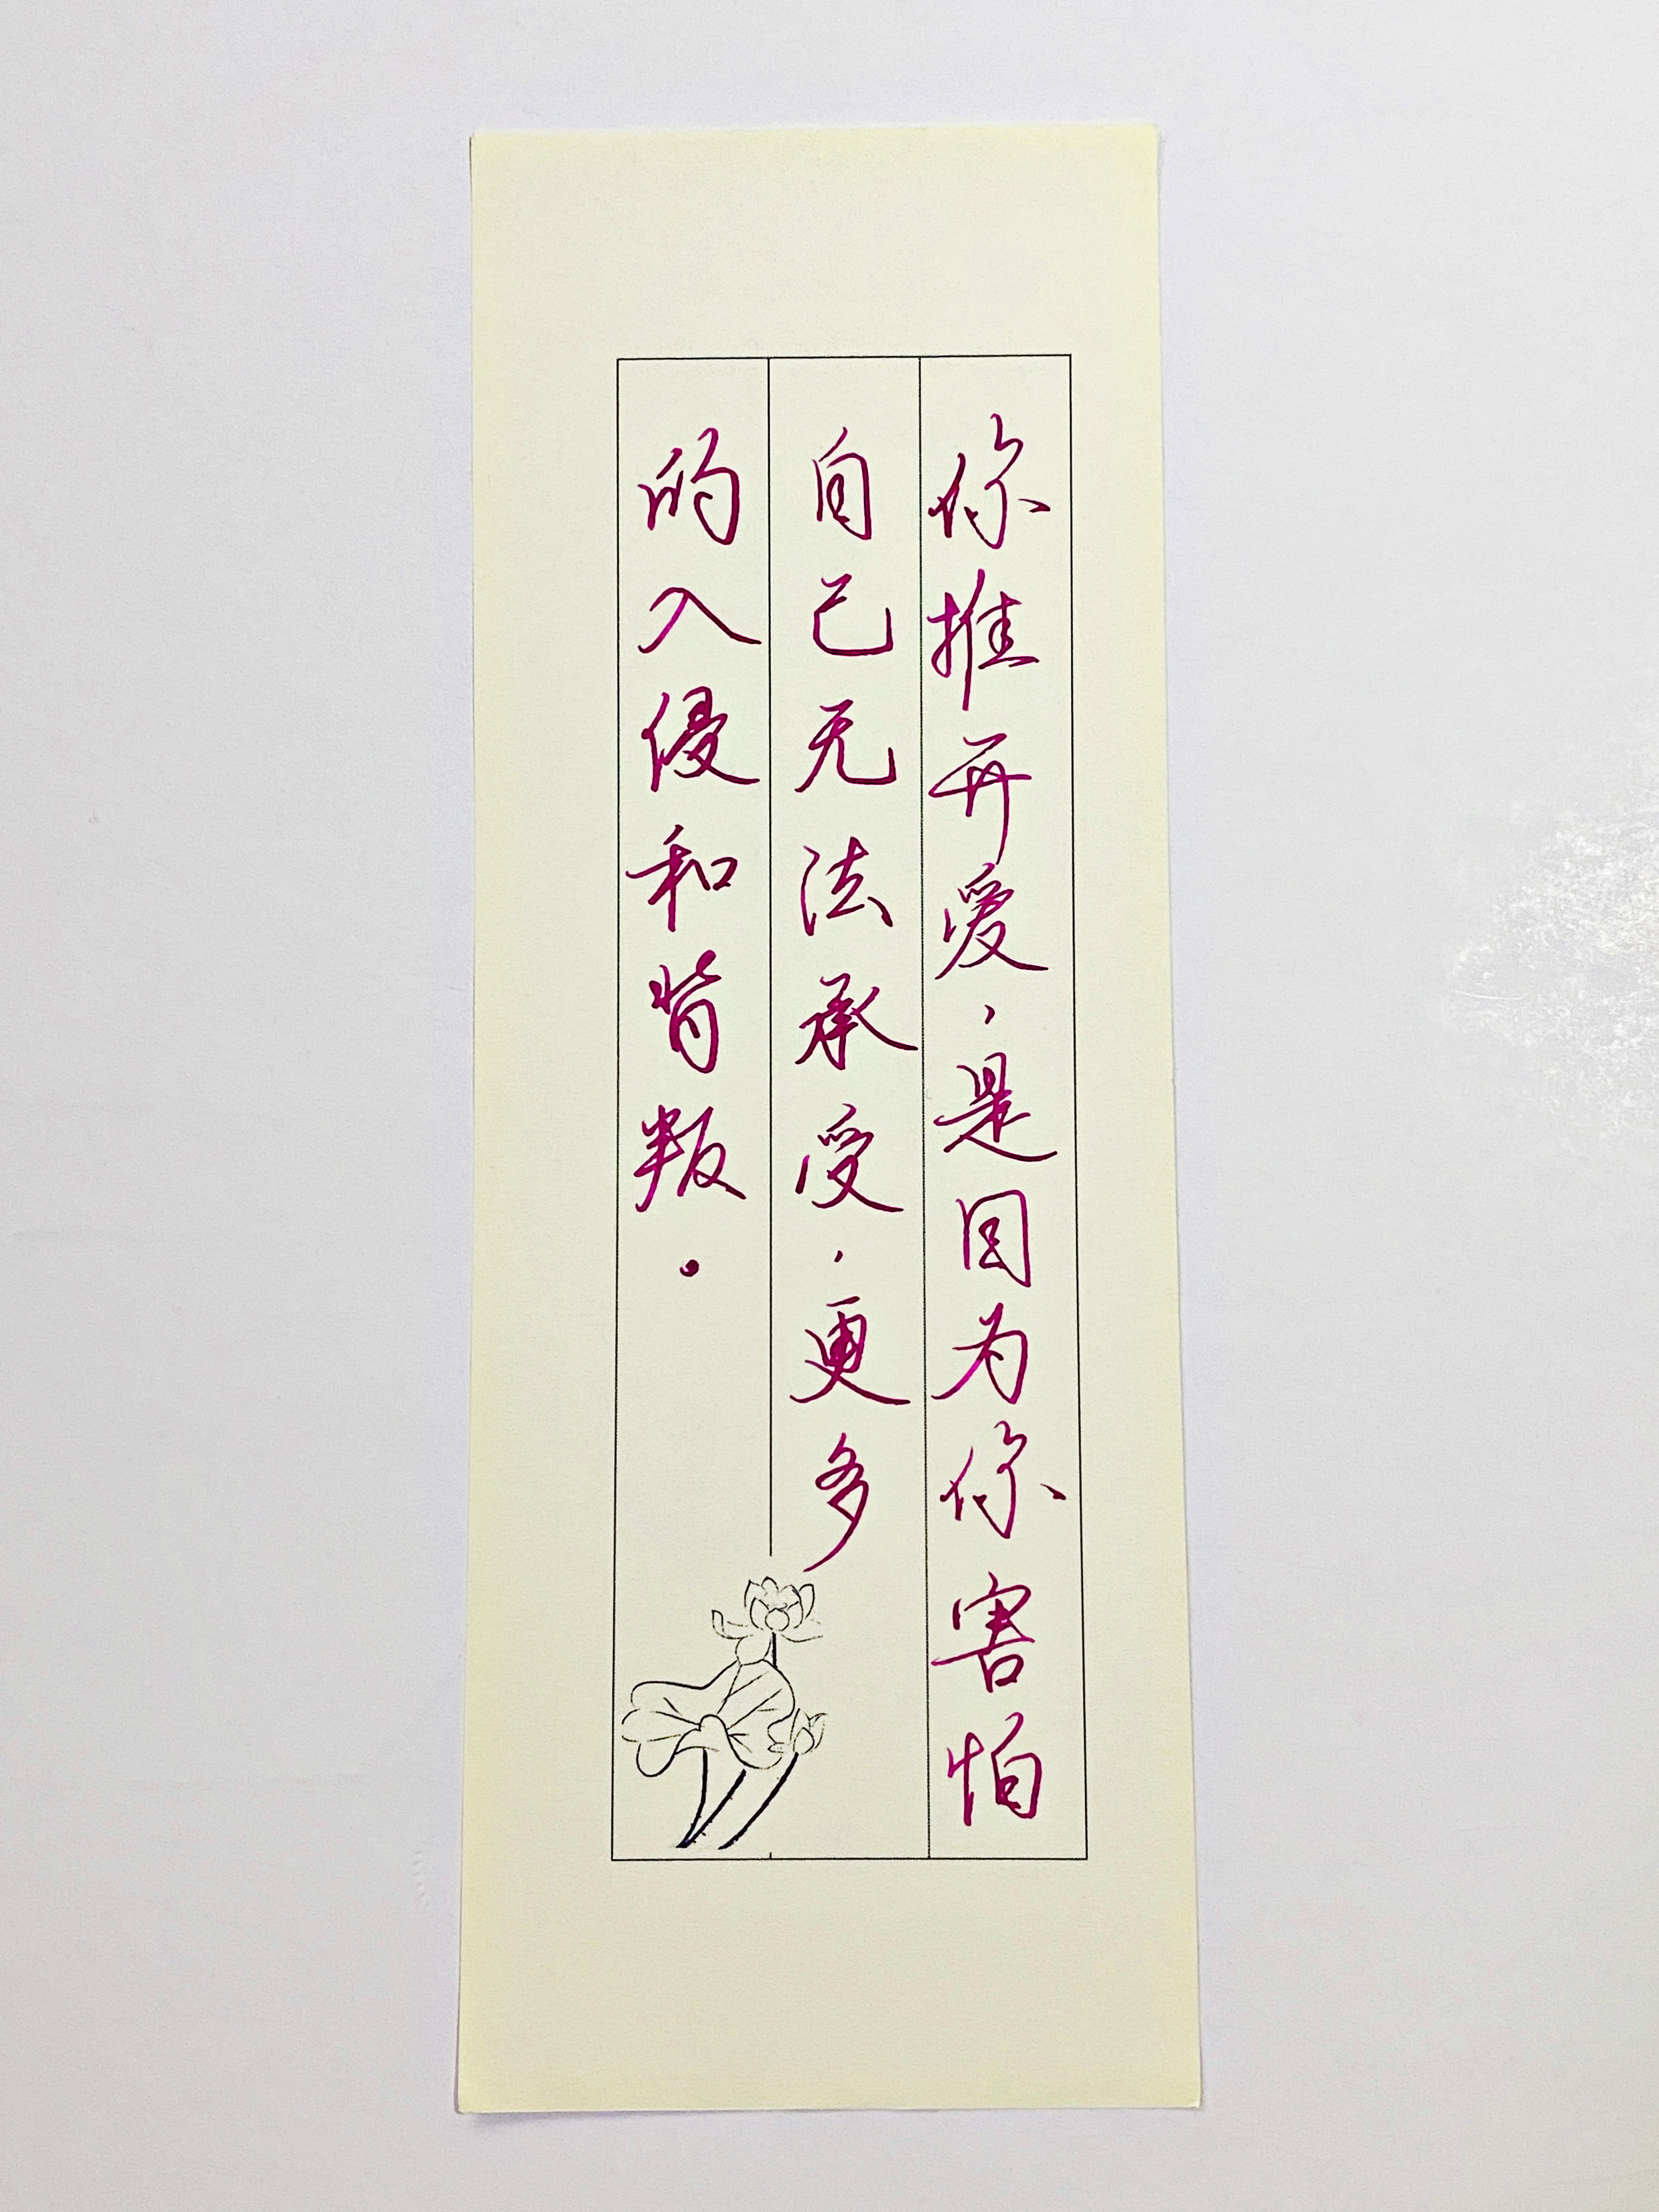 你推开爱，是因为你害怕
自己无法承受，更多
的入侵和背叛。